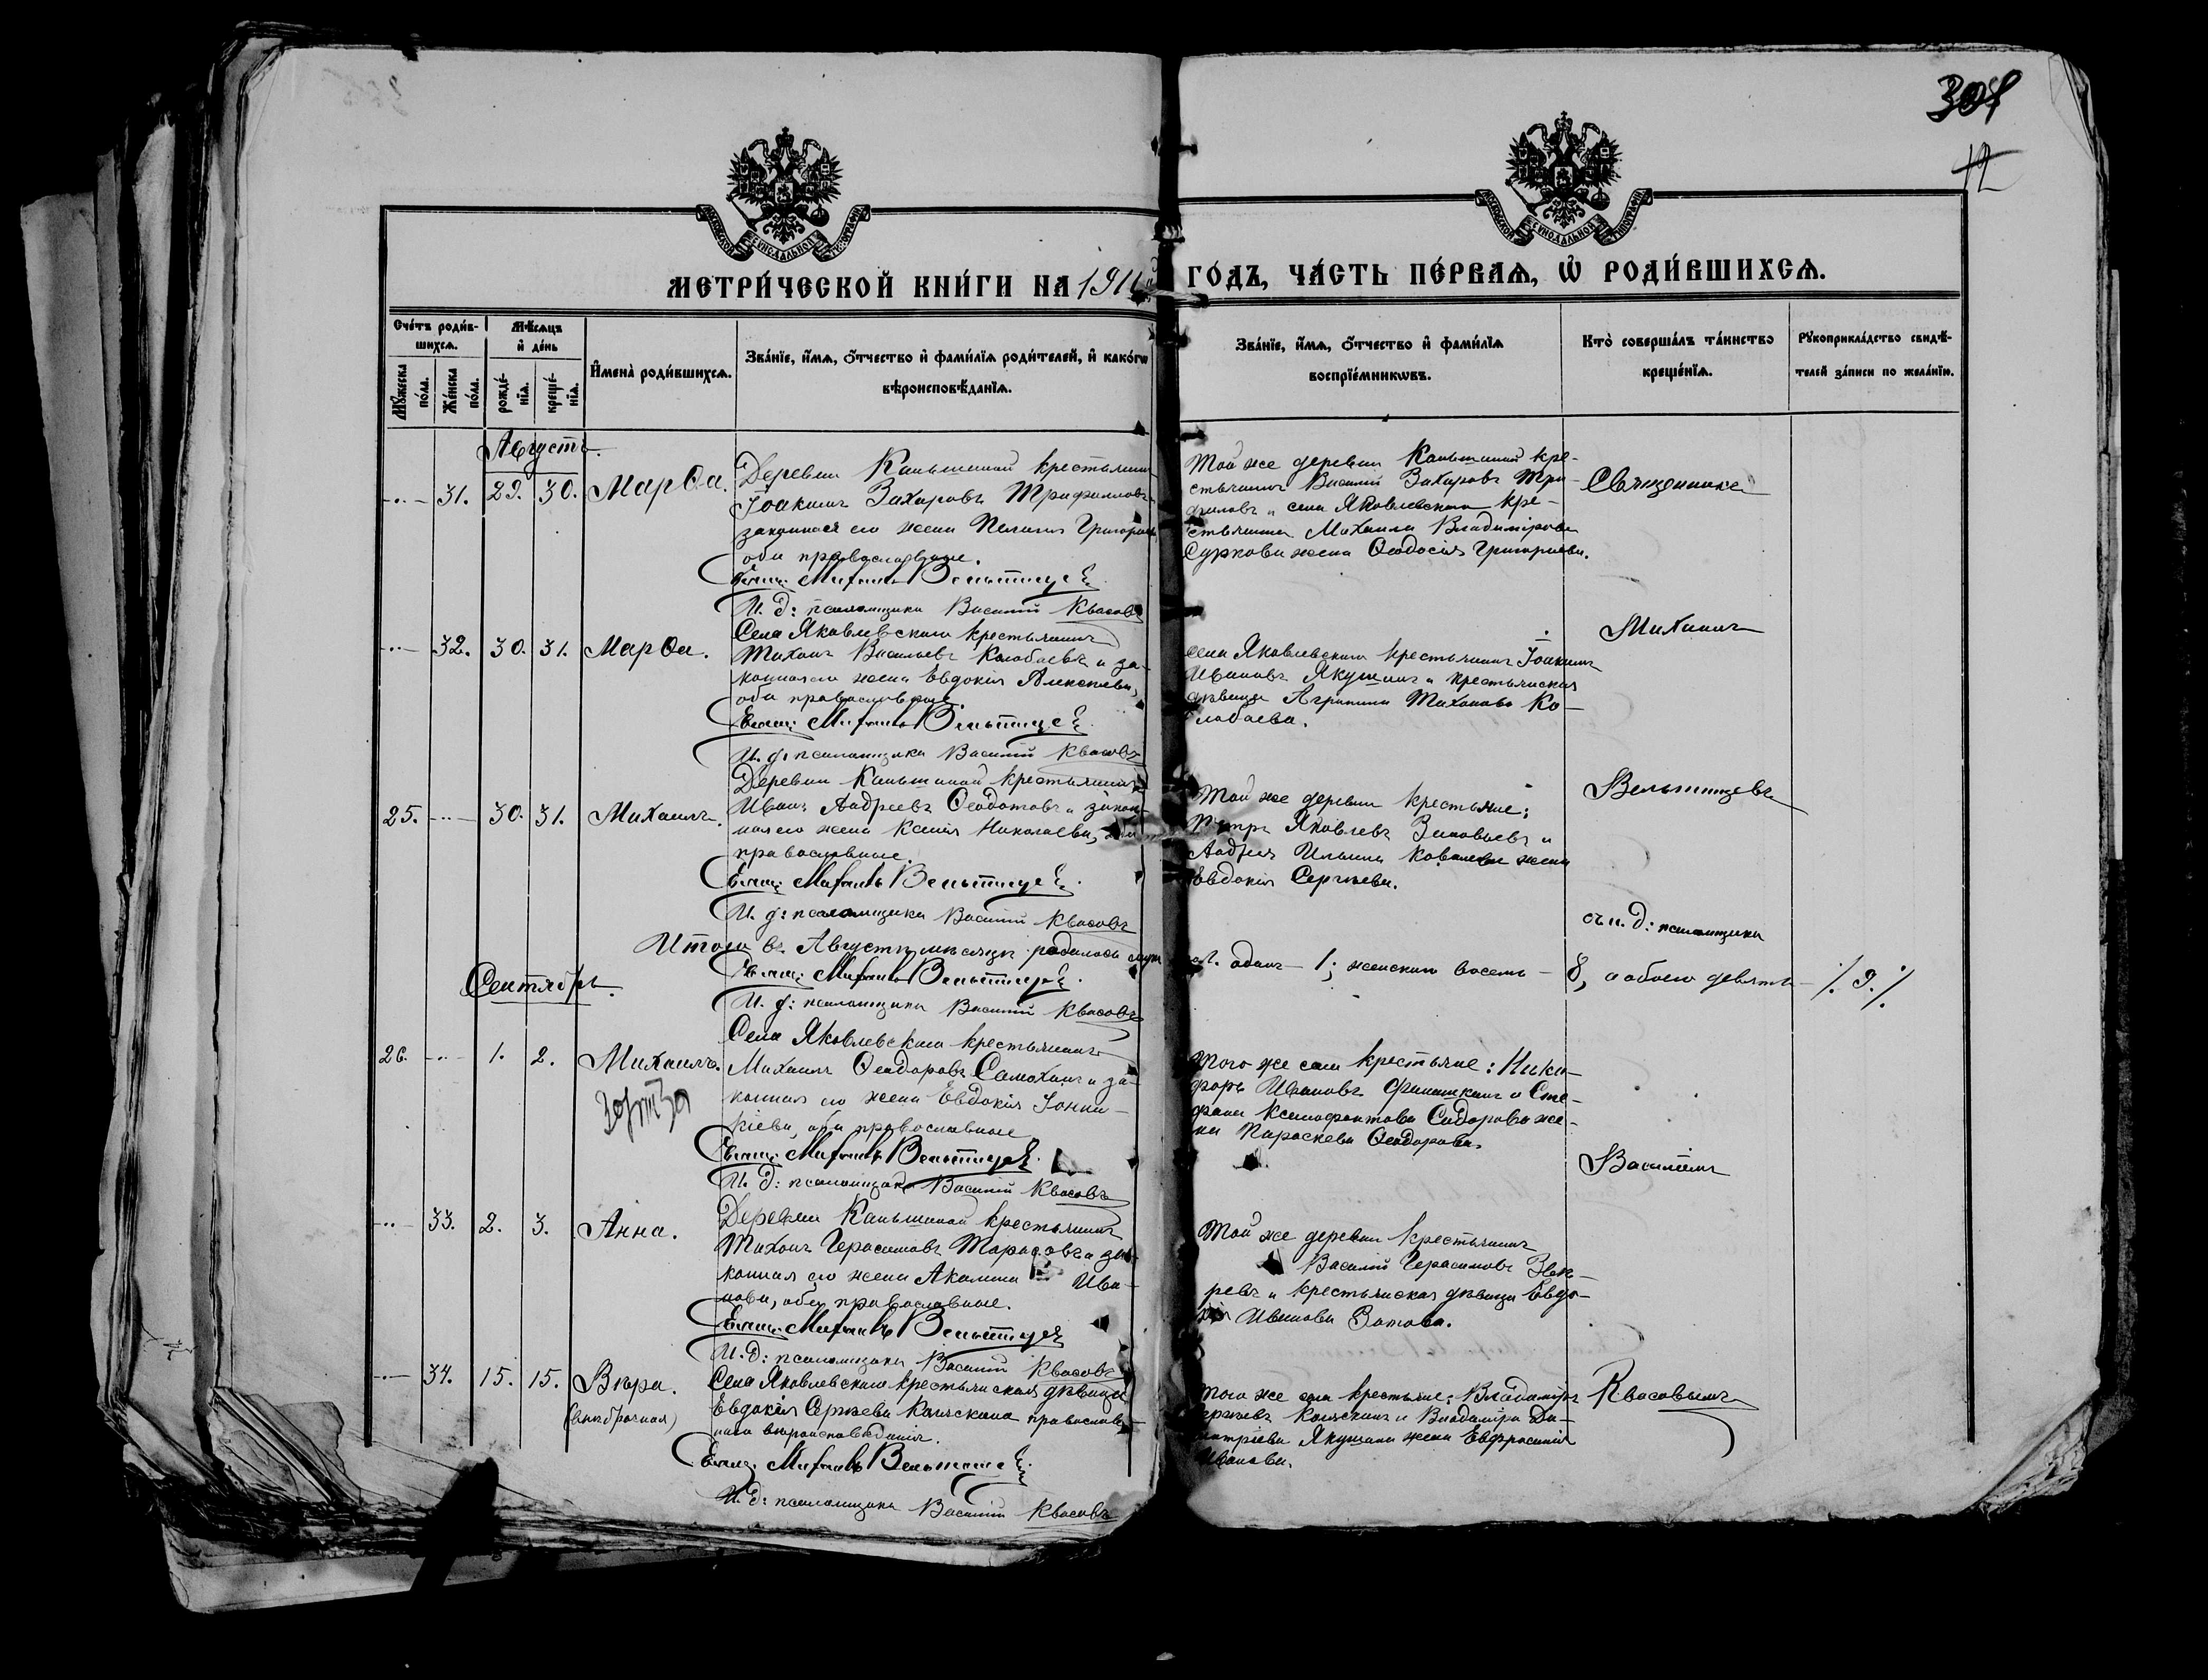 307
12
МОСКОВСКОЙ СѴНОДАЛЬНОЙ ТѴПОГРАФІИ
МОСКОВСКОЙ СѴНОДАЛЬНОЙ ТѴПОГРАФІИ
МЕТРИ́ЧЕСКОЙ КНИ́ГИ НА 191 ГО́ДЪ, ЧА́СТЬ ПЕ́РВАѦ, Ѡ҆ РОДИ́ВШИХСѦ.
Сче́тъ роди́в-
шихсѧ.
Мꙋ́жеска по́ла.
Же́нска по́ла.
Мѣ́сѧцъ и҆ де́нь
рожде́-
нїѧ.
креще́-
нїѧ.
И҆мена̀ роди́вшихсѧ.
Зва́нїе, и҆́мѧ, ѻ҆́тчество и҆ фами́лїѧ роди́телей, и҆ како́гѡ
вѣроисповѣ́данїѧ.
Зва́нїе, и҆́мѧ, ѻ҆́тчество и҆ фами́лїѧ
воспрїе́мникѡвъ.
Кто̀ соверша́лъ та́инство
креще́нїѧ.
Рꙋкоприкла́дство свидѣ́-
телей за́писи по жела́нїю.
Августъ.
31. 29. 30. Марѳа.
Деревни Каньшиной крестьянинъ
Іоакимъ Захаровъ Трифиловъ
законная его жена Пелагія Григорьева
оба православные.
Свящ: Михаилъ Вельтищевъ
И. д: псаломщика Василій Квасовъ
Той же деревни Каньшиной кре-
стьянинъ Василій Захаровъ Три-
филовъ и села Яковлевскаго кре-
стьянина Михаила Владимірова
Суркова жена Ѳеодосія Григорьева.
Священникъ
32. 30. 31. Марѳа.
Села Яковлевскаго крестьянинъ
Тихонъ Васильевъ Колобаевъ и за-
конная его жена Евдокія Алексѣева,
оба православные.
Свящ: Михаилъ Вельтищевъ
И. д: псаломщика Василій Квасовъ
села Яковлевскаго крестьянинъ Іоакимъ
Ивановъ Якушинъ и крестьянская
дѣвица Агрипина Тихонова Ко-
лобаева.
Михаилъ
25. 30. 31. Михаилъ.
Деревни Каньшиной крестьянинъ
Иванъ Андреевъ Ѳеодотовъ и закон-
ная его жена Ксенія Николаева,
православные.
Свящ: Михаилъ Вельтищевъ
И. д: псаломщика Василій Квасовъ
Той же деревни крестьяне:
Петръ Яковлевъ Зиновьевъ и
Андрея Ильина Ковалева жена
Евдокія Сергѣева.
Вельтищевъ
съ и. д: псаломщика
Итого въ Августѣ мѣсяцѣ родилось муж
п. одинъ — 1; женскаго восемь — 8, а обоего девять — ·/. 9. ·/.
Свящ: Михаилъ Вельтищевъ
И. д: псаломщика Василій Квасовъ
Сентябрь.
26. 1. 2. Михаилъ.
Села Яковлевскаго крестьянинъ
Михаилъ Ѳеодоровъ Самохинъ и за-
конная его жена Евдокія Іоанни-
кіева, оба православные
Свящ: Михаилъ Вельтищевъ
И. д: псаломщика Василій Квасовъ
Того же села крестьяне: Ники-
форъ Ивановъ и Сте-
фана Ксенофонтова Сидорова же-
на Параскева Ѳеодорова.
Василіемъ
33. 2. 3. Анна.
Деревни Каньшиной крестьянинъ
Тихонъ Герасимовъ Тарасовъ и за-
конная его жена Акилина Ива-
нова, оба православные.
Свящ: Михаилъ Вельтищевъ
И. д: псаломщика Василій Квасовъ
Той же деревни крестьянинъ
Василій Герасимовъ Звѣ-
ревъ и крестьянская дѣвица Евдо-
кія Иванова Зотова.
34. 15. 15. Вѣра.
(внѣбрачная)
Села Яковлевскаго крестьянская дѣвица
Евдокія Сергѣева Коляскина православ-
наго вѣроисповѣданія.
Свящ: Михаилъ Вельтищевъ
И. д: псаломщика Василій Квасовъ
Того же села крестьяне: Владиміръ
Сергѣевъ Коляскинъ и Владиміра Ди-
митріева Якушина жена Евфросинія
Иванова.
Квасовымъ